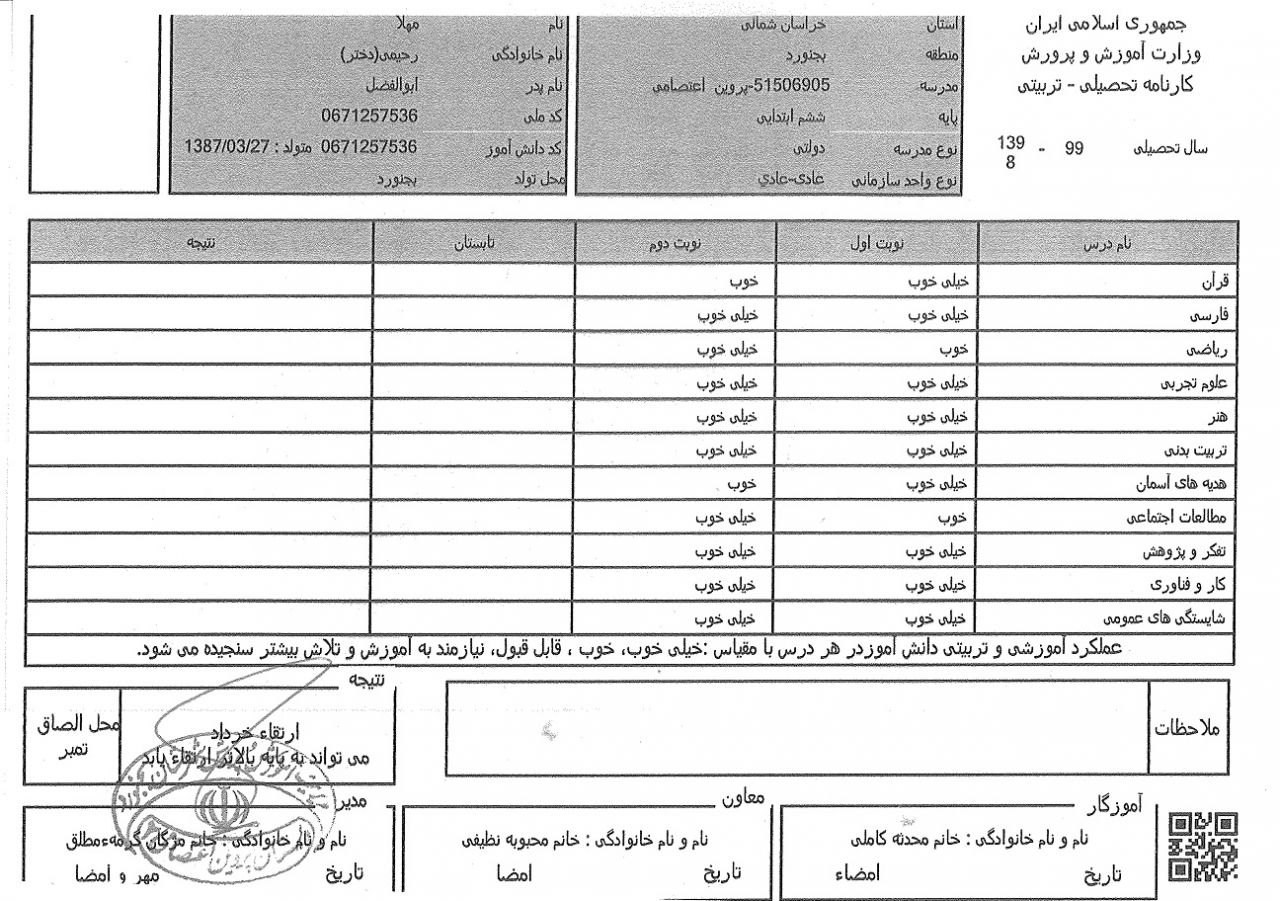 جمهوری اسلامی ایران
وزارت آموزش و پرورش
کارنامه تحصیلی - تربیتی
سال تحصیلی 99 - 1398
استان خراسان شمالی
منطقه بجنورد
مدرسه 51506905-پروین اعتصامی
پایه ششم ابتدایی
نوع مدرسه دولتی
نوع واحد سازمانی عادی-عادي
نام مهلا
نام خانوادگی رحیمی(دختر)
نام پدر ابوالفضل
کد ملی 0671257536
کد دانش آموز 0671257536 متولد : 1387/03/27
محل تولد بجنورد
نام درس نوبت اول نوبت دوم تابستان نتیجه
قرآن خیلی خوب خوب
فارسی خیلی خوب خیلی خوب
ریاضی خوب خیلی خوب
علوم تجربی خیلی خوب خیلی خوب
هنر خیلی خوب خیلی خوب
تربیت بدنی خیلی خوب خیلی خوب
هدیه های آسمان خیلی خوب خوب
مطالعات اجتماعی خوب خیلی خوب
تفکر و پژوهش خیلی خوب خیلی خوب
کار و فناوری خیلی خوب خیلی خوب
شایستگی های عمومی خیلی خوب خیلی خوب
عملکرد آموزشی و تربیتی دانش آموزدر هر درس با مقیاس :خیلی خوب، خوب ، قابل قبول، نیازمند به آموزش و تلاش بیشتر سنجیده می شود.
ملاحظات
نتیجه
ارتقاء خرداد
می تواند به پایه بالاتر ارتقاء یابد
محل الصاق
تمبر
آموزگار
نام و نام خانوادگی : خانم محدثه کاملی
تاریخ امضاء
معاون
نام و نام خانوادگی : خانم محبوبه نظیفی
تاریخ امضا
مدیر
نام و نام خانوادگی : خانم مژگان گرمه‌ءمطلق
تاریخ مهر و امضا